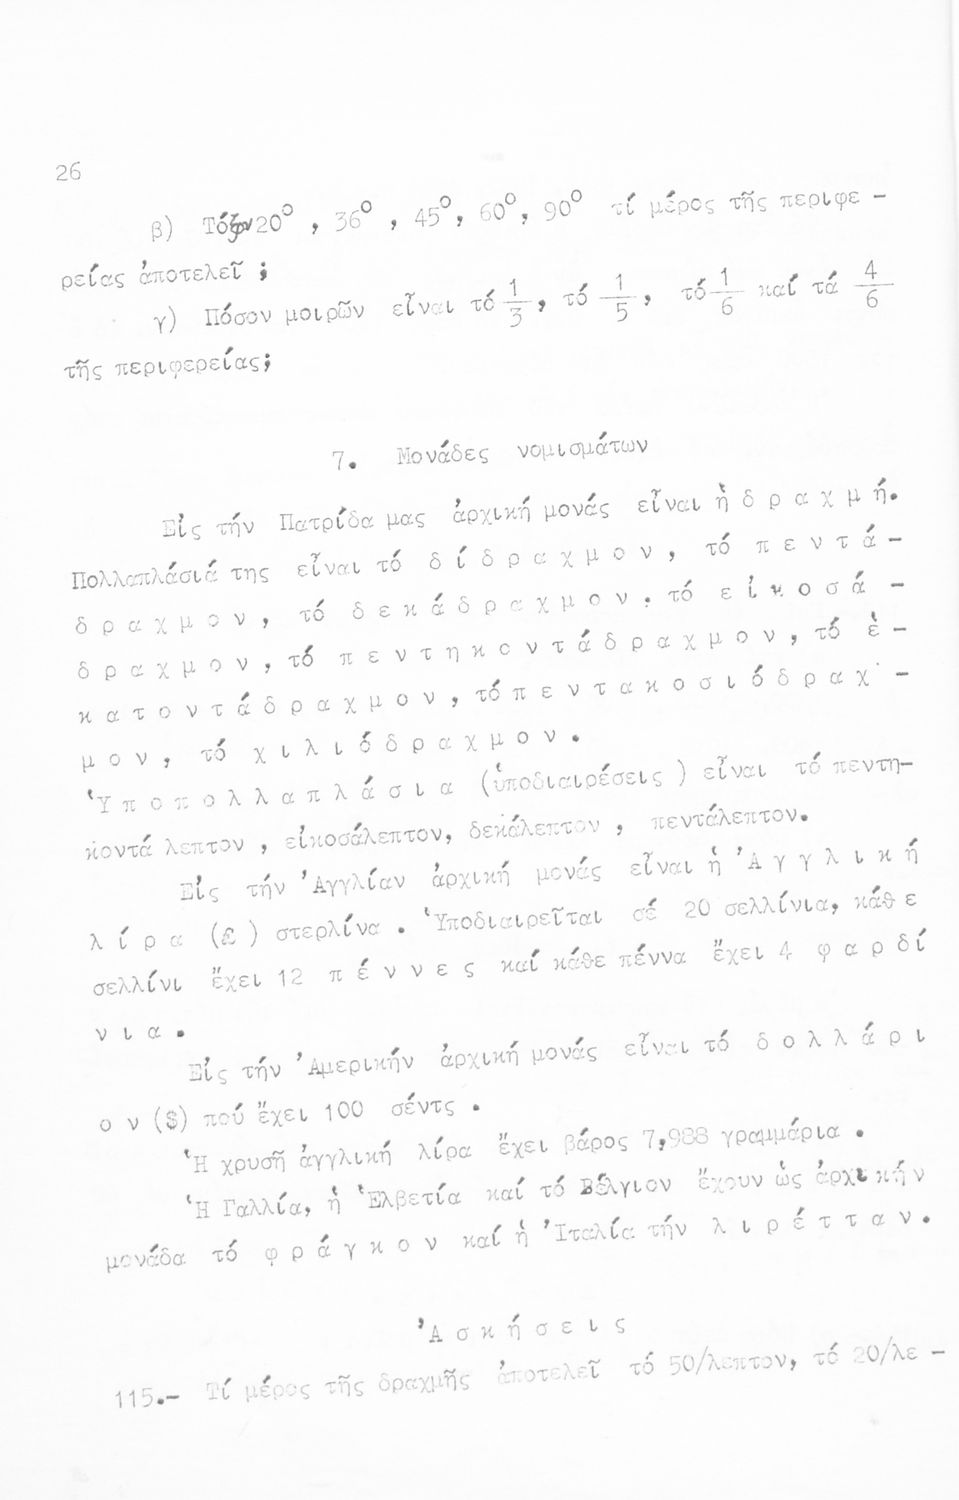 26
β) Τόξον 20° , 36° , 45°, 60°, 90° τί μέρος τῆς περιφε -
ρείας ἀποτελεῖ ;
γ) Πόσον μοιρῶν εἶναι τό 1/3 , τό 1/5 , τό 1/6 καί τά 4/6
τῆς περιφερείας;
7. Μονάδες νομισμάτων
Εἰς τήν Πατρίδα μας ἀρχική μονάς εἶναι ἡ δ ρ α χ μ ή.
Πολλαπλάσιά της εἶναι τό δ ί δ ρ α χ μ ο ν , τό π ε ν τ ά -
δ ρ α χ μ ο ν , τό δ ε κ ά δ ρ α χ μ ο ν . τό ε ἰ κ ο σ ά -
δ ρ α χ μ ο ν , τό π ε ν τ η κ ο ν τ ά δ ρ α χ μ ο ν , τό ἑ -
κ α τ ο ν τ ά δ ρ α χ μ ο ν , τό π ε ν τ α κ ο σ ι ό δ ρ α χ -
μ ο ν , τό χ ι λ ι ό δ ρ α χ μ ο ν .
Ὑ π ο π ο λ λ α π λ ά σ ι α (ὑποδιαιρέσεις ) εἶναι τό πεντη-
κοντά λεπτον , εἰκοσάλεπτον, δεκάλεπτον , πεντάλεπτον.
Εἰς τήν Ἀγγλίαν ἀρχική μονάς εἶναι ἡ Ἀ γ γ λ ι κ ή
λ ί ρ α (£ ) στερλίνα . Ὑποδιαιρεῖται σέ 20 σελλίνια, κάθ ε
σελλίνι ἔχει 12 π έ ν ν ε ς καί κάθε πέννα ἔχει 4 φ α ρ δ ί
ν ι α .
Εἰς τήν Ἀμερικήν ἀρχική μονάς εἶναι τό δ ο λ λ ά ρ ι
ο ν ($) πού ἔχει 100 σέντς .
Ἡ χρυσῆ ἀγγλική λίρα ἔχει βάρος 7,988 γραμμάρια .
Ἡ Γαλλία, ἡ Ἑλβετία καί τό Βέλγιον ἔχουν ὡς ἀρχικήν
μονάδα τό φ ρ ά γ κ ο ν καί ἡ Ἰταλία τήν λ ι ρ έ τ τ α ν .
Ἀ σ κ ή σ ε ι ς
115.- Τί μέρος τῆς δραχμῆς ἀποτελεῖ τό 50/λεπτον, τό 20/λε -